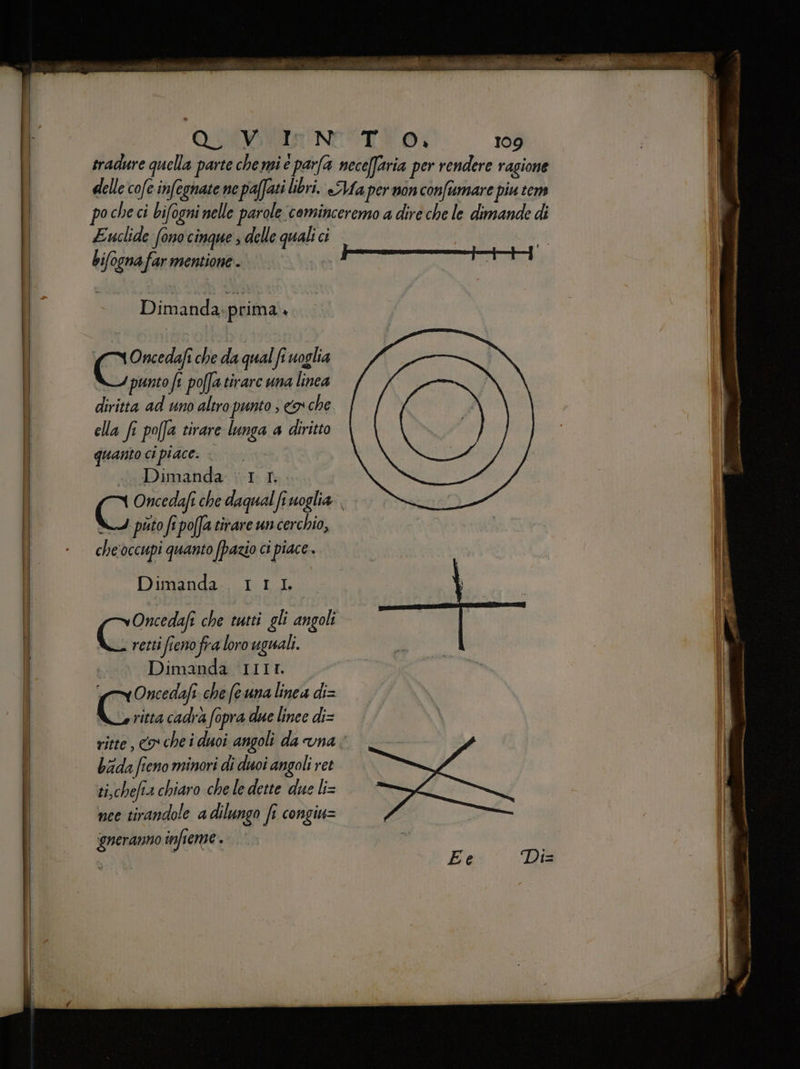 Q V I N T O. 109
tradure quella parte che mi è parſa neceſſaria per rendere ragione
delle coſe inſegnate ne paſſati libri. Ma per non conſumare piu tem
po che ci biſogni nelle parole cominceremo a dire che le dimande di
Euclide ſono cinque, delle quali ci
biſogna far mentione.
Dimanda prima.
COncedaſi che da qual ſi uoglia
punto ſi poſſa tirare una linea
diritta ad uno altro punto, & che
ella ſi poſſa tirare lunga a diritto
quanto ci piace.
Dimanda I I.
COncedaſi che da qual ſi uoglia
pūto ſi poſſa tirare un cerchio,
che occupi quanto ſpazio ci piace.
Dimanda I I I.
COncedaſi che tutti gli angoli
retti ſieno fra loro uguali.
Dimanda IIII.
COncedaſi che ſe una linea di=
ritta cadrà ſopra due linee di=
ritte, & che i duoi angoli da vna
bāda ſieno minori di duoi angoli ret
ti, che ſia chiaro che le dette due li=
nee tirandole a dilungo ſi congiu=
gneranno inſieme.
Ee Di=